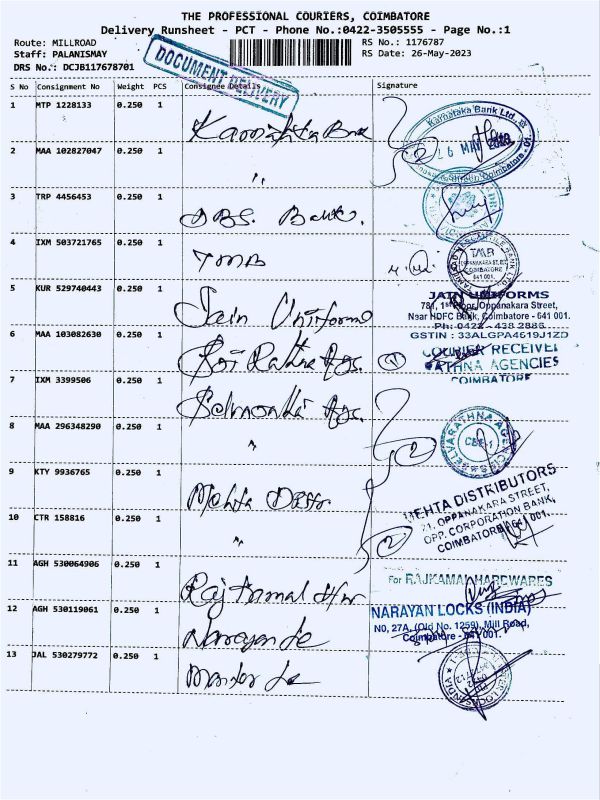 THE PROFESSIONAL COURIERS, COIMBATORE
Delivery Runsheet - PCT - Phone No.:0422-3505555 - Page No.:1
Route: MILLROAD
RS No.: 1176787
Staff: PALANISMAY
RS Date: 26-May-2023
DRS No.: DCJB117678701
DOCUMENT DELIVERY
S No Consignment No Weight PCS Consignee Details Signature
1 MTP 1228133 0.250 1
Karnataka Bank Ltd.
26 MAY
Coimbatore - 01.
2 MAA 102827047 0.250 1 "
2
3 TRP 4456453 0.250 1 DBS. Bank.
4 IXM 503721765 0.250 1 TMB
TMB
OPPANAKARA ST.
COIMBATORE
641 001.
5 KUR 529740443 0.250 1 Jain Uniforms
JAIN UNIFORMS
781, 1st Floor, Oppanakara Street,
Near HDFC Bank, Coimbatore - 641 001.
Ph: 0422 - 438 2886
GSTIN : 33ALGPA4619J1ZD
6 MAA 103082630 0.250 1
1
COURIER RECEIVE
RATHNA AGENCIES
COIMBATORE
7 IXM 3399506 0.250 1
8 MAA 296348290 0.250 1 "
2
SELVARATHNA AGENCIES
CBE-1
9 KTY 9936765 0.250 1 Mehta
MEHTA DISTRIBUTORS
71, OPPANAKARA STREET,
OPP. CORPORATION BANK,
COIMBATORE - 641 001.
10 CTR 158816 0.250 1 "
2
11 AGH 530064906 0.250 1 Raj Kamal
For RAJKAMAL HARDWARES
12 AGH 530119061 0.250 1 Narayan
NARAYAN LOCKS (INDIA)
NO, 27A, (Old No. 1259), Mill Road,
Coimbatore - 641 001.
13 JAL 530279772 0.250 1